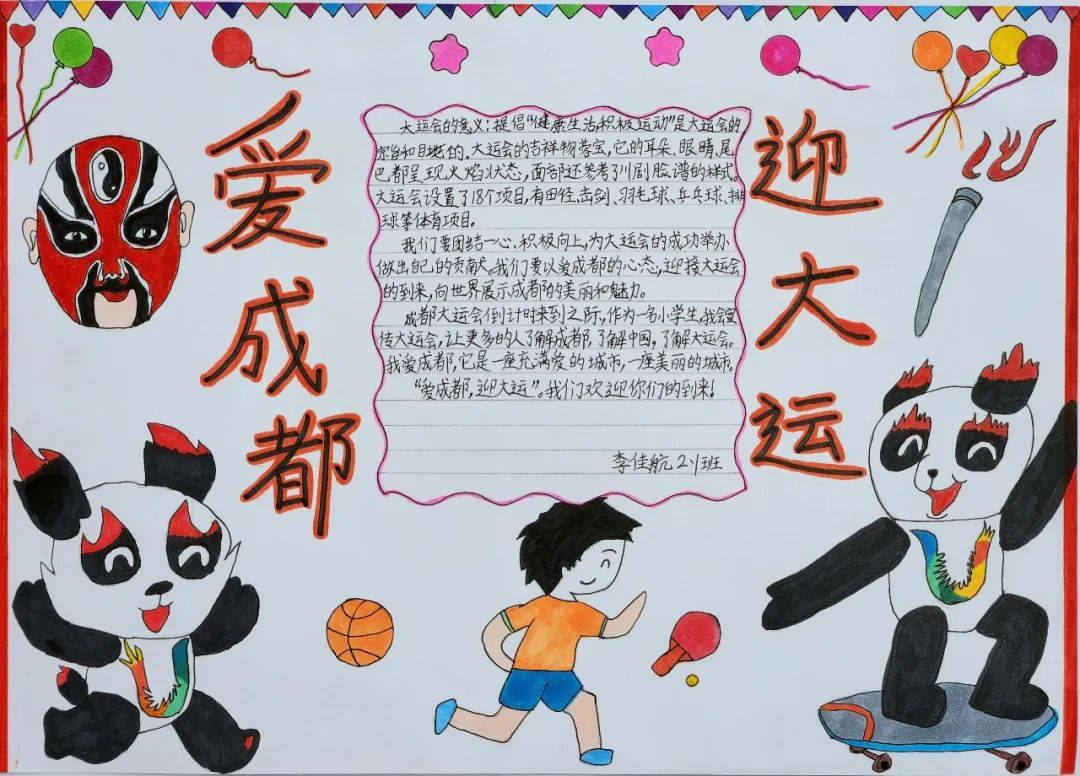 爱成都
迎大运
大运会的意义：提倡“健康生活积极运动”是大运会的
宗旨和目地的。大运会的吉祥物蓉宝，它的耳朵、眼睛、尾
巴都呈现火焰状态，面部还参考了川剧脸谱的样式。
大运会设置了18个项目，有田径、击剑、羽毛球、乒乓球、排
球等体育项目。
我们要团结一心、积极向上，为大运会的成功举办
做出自己的贡献。我们要以爱成都的心态，迎接大运会
的到来，向世界展示成都的美丽和魅力。
成都大运会倒计时来到之际，作为一名小学生，我会宣
传大运会，让更多的人了解成都，了解中国，了解大运会。
我爱成都，它是一座充满爱的城市，一座美丽的城市。
“爱成都，迎大运”。我们欢迎你们的到来！
李佳航 2、1班